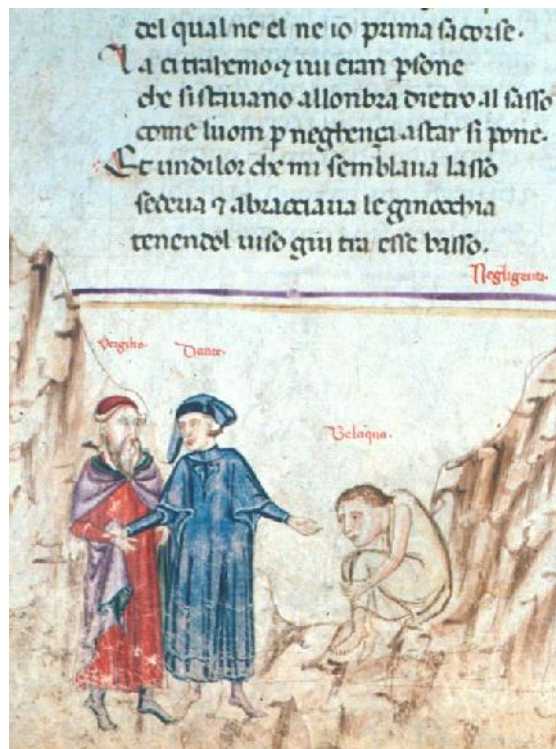 del qual ne el ne io prima sacorse.
La ci trahemo ⁊ iui eran psone
che si stauano allonbra dietro al sasso
come luom p neghença a star si pone.
Et un di lor che mi semblaua lasso
sedeua ⁊ abracciaua le ginocchia
tenendol uiso giu tra esse basso.
Negligentia.
Vergilio. Dante.
Belaqua.